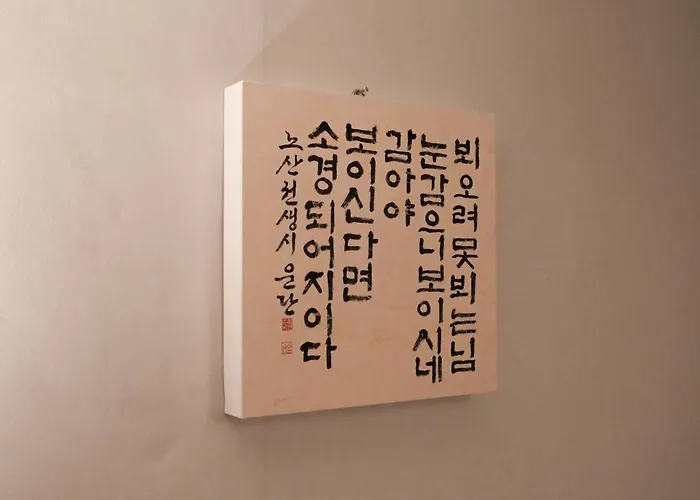 뵈오려못뵈는님
눈감으니보이시네
감아야
보이신다면
소경되어지이다
노산선생시